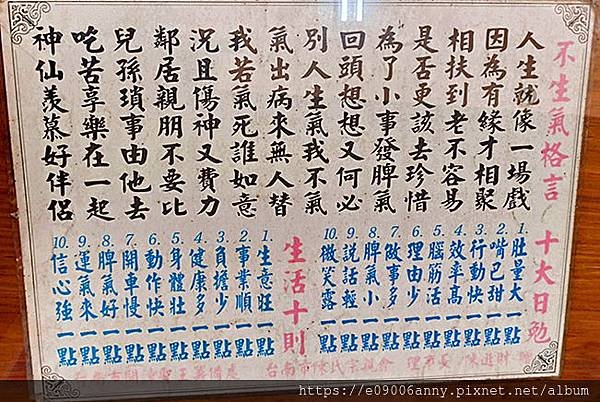 不生氣格言
人生就像一場戲
因為有緣才相聚
相扶到老不容易
是否更該去珍惜
為了小事發脾氣
回頭想想又何必
別人生氣我不氣
氣出病來無人替
我若氣死誰如意
況且傷神又費力
鄰居親朋不要比
兒孫瑣事由他去
吃苦享樂在一起
神仙羨慕好伴侶
十大日勉
1. 肚量大一點
2. 嘴巴甜一點
3. 行動快一點
4. 效率高一點
5. 腦筋活一點
6. 理由少一點
7. 做事多一點
8. 脾氣小一點
9. 說話輕一點
10. 微笑露一點
生活十則
1. 生意旺一點
2. 事業順一點
3. 負擔少一點
4. 健康多一點
5. 身體壯一點
6. 動作快一點
7. 開車慢一點
8. 脾氣好一點
9. 運氣來一點
10. 信心強一點
台南市陳氏宗親會
https://e09006anny.pixnet.net/album